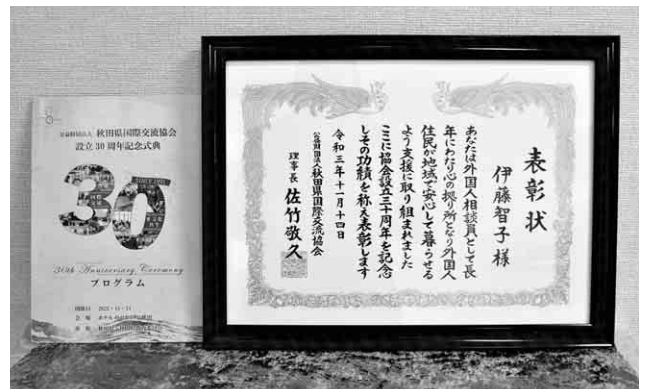 公益財団法人 秋田県国際交流協会
設立30周年記念式典
30
30th Anniversary Ceremony
プログラム
開催日 2021・11・14
会場
表彰状
伊藤智子様
あなたは外国人相談員として長
年にわたり心の拠り所となり外国人
住民が地域で安心して暮らせる
よう支援に取り組まれました
ここに協会設立三十周年を記念
しその功績を称え表彰します
令和三年十一月十四日
公益財団法人秋田県国際交流協会
理事長 佐竹敬久